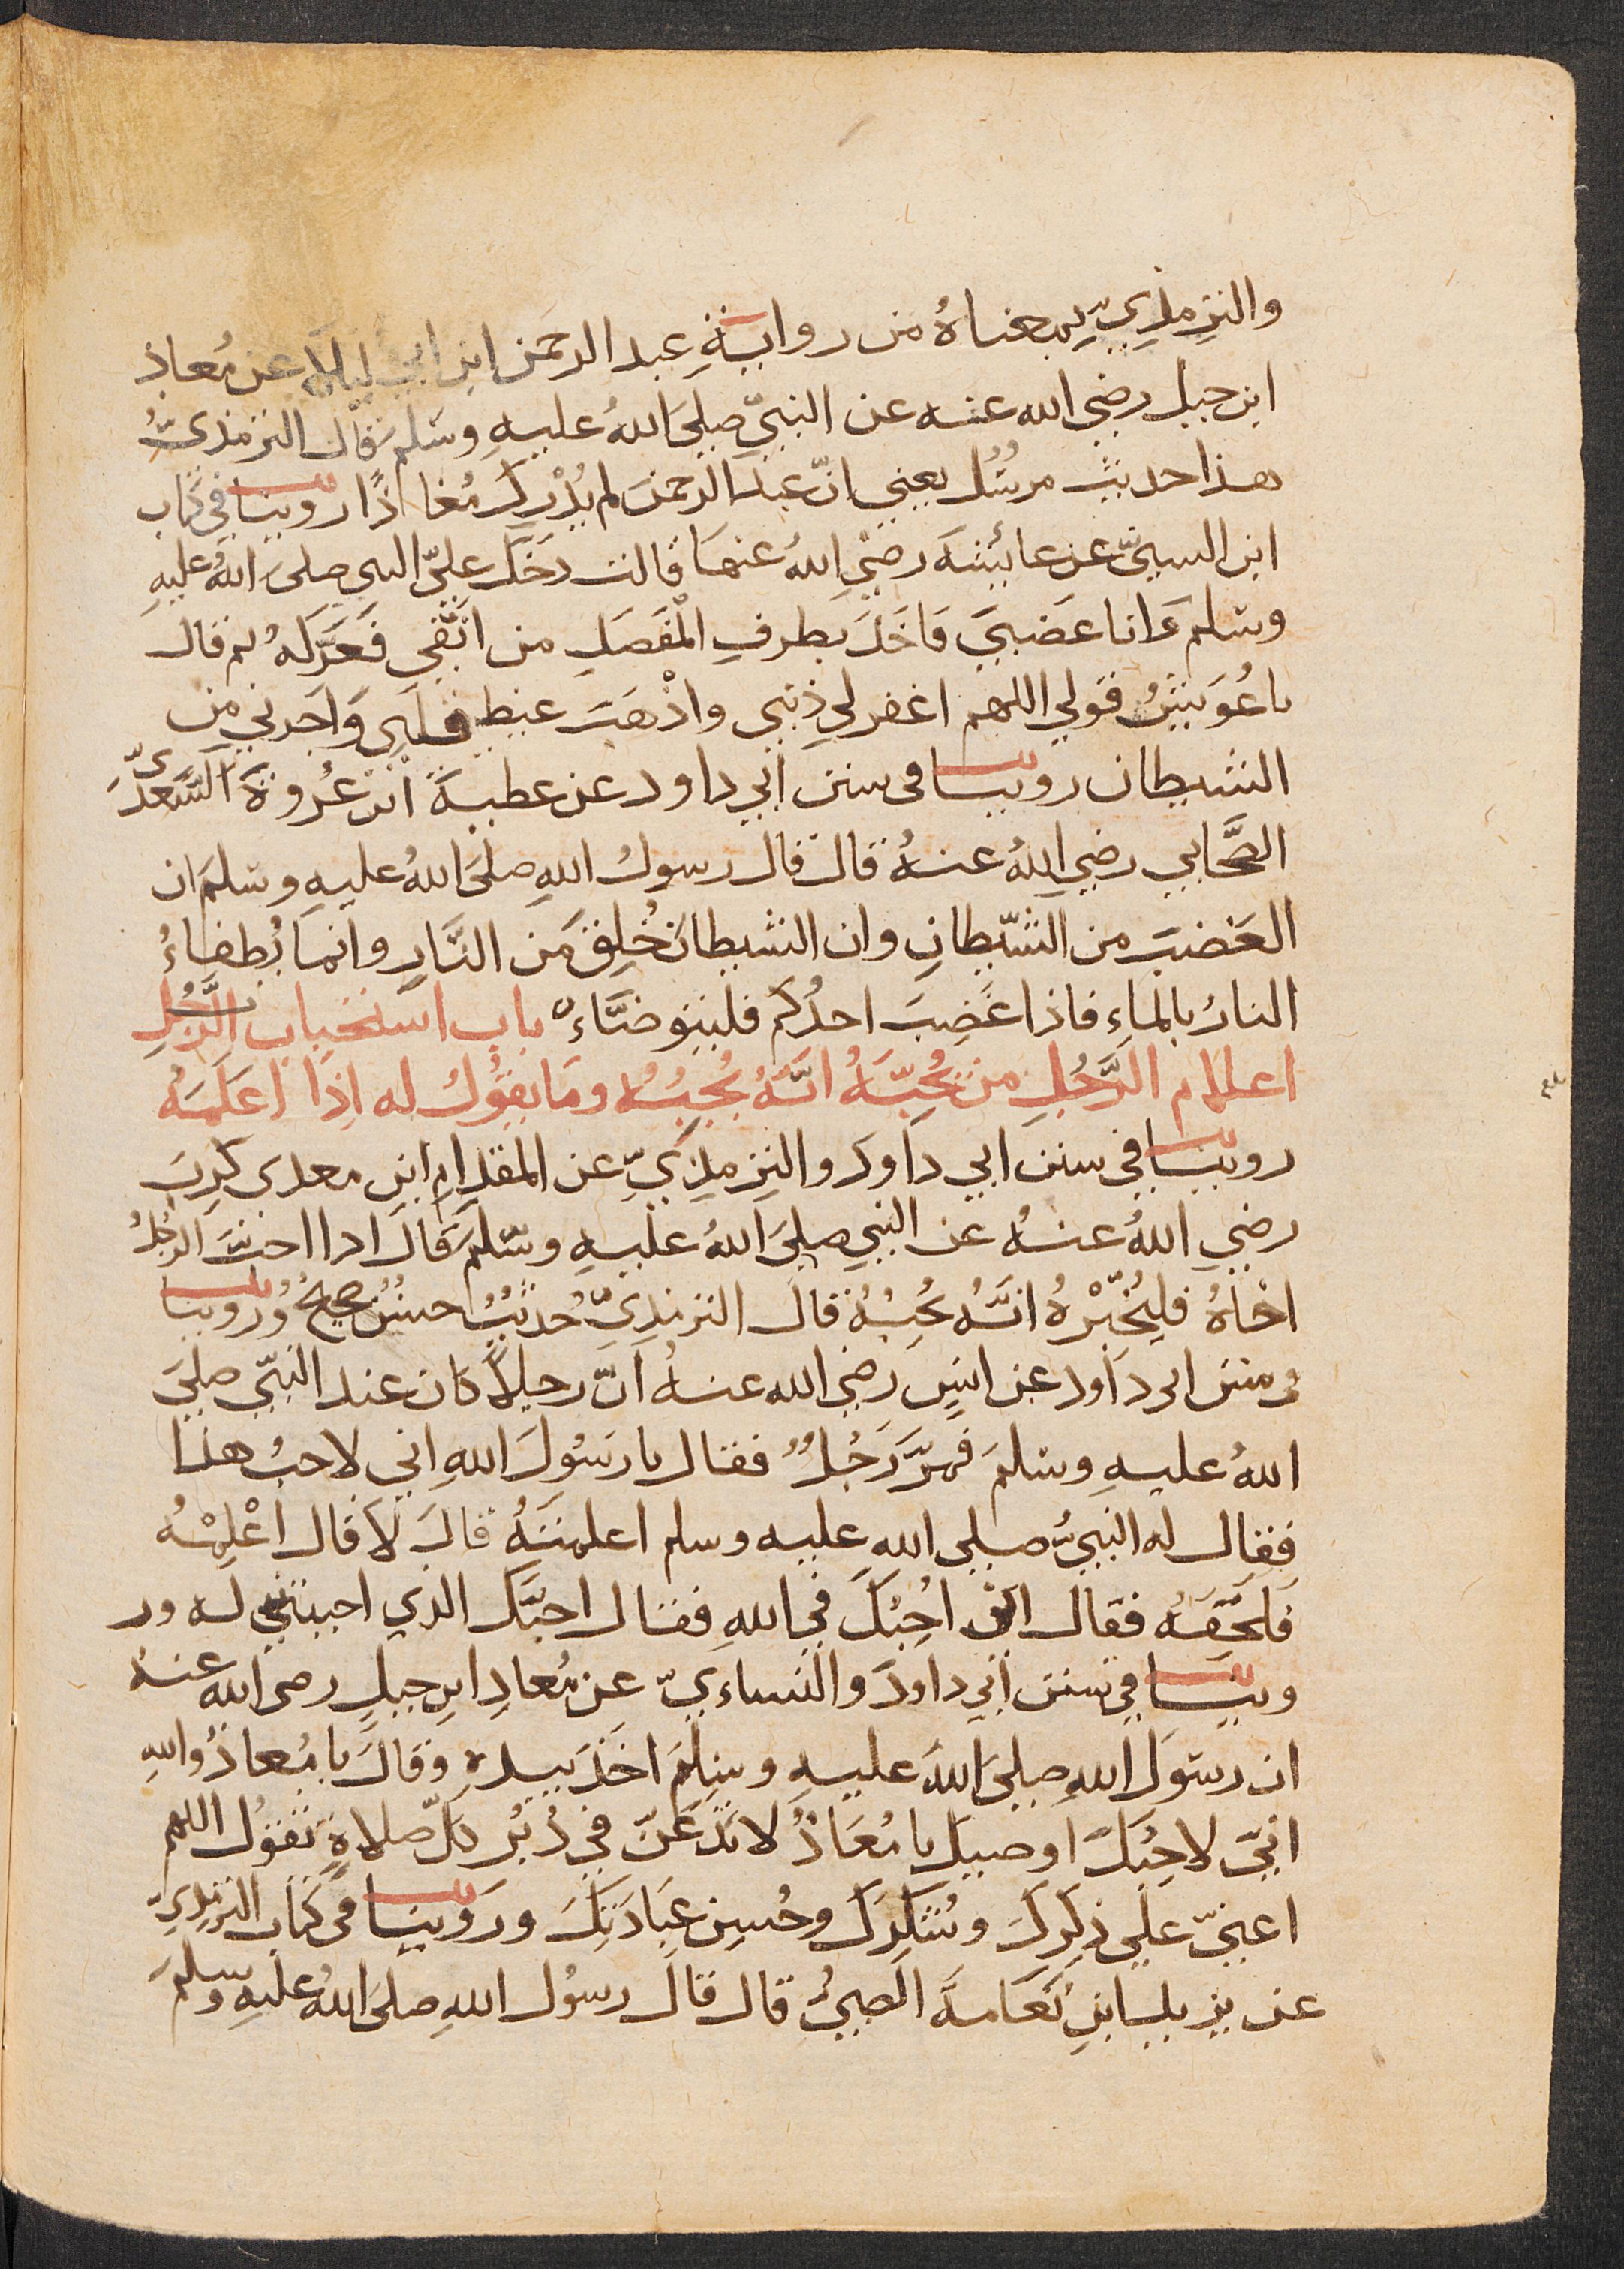 والترمذيِّ بمعناهُ من روايةِ عبد الرحمن ابن ابي ليلا عن مُعاذ
ابن جبل رضي الله عنه عن النبيِّ صلى اللهُ عليهِ وسَلم قال الترمذيُّ
هذا حديث مرسُل يعني انّ عبدَ الرحمن لم يُدْرِك مُعاذًا روينا في كتاب
ابن السنيّ عن عائشه رضي اللهُ عنها قالت دَخَل عليّ النبي صلى اللهُ عليهِ
وسلم وَانا غَضبَى فاخَذ بطرفِ المْفصَلِ من انفي فَعَرَكهُ ثم قال
يا عُوَيشُ قولي اللهم اغفر لي ذنبي واذْهَب غيظ قلبي وَاجرني من
الشيطان روينا في سنن ابي داود عن عطيةَ ابن عُروةَ السَّعديّ
الصَّحابي رضي اللهُ عنهُ قال قال رسولُ اللهِ صلى اللهُ عليهِ وسلمَ ان
الغضبَ من الشّيطانِ وان الشيطان خُلِق مَن النَّارِ وانما يُطفاءُ
النارُ بالماءِ فاذا غَضِبَ احدُكم فليتوضَّاءْ باب استحباب الرَّجُلِ
اعلام الرَّجُلِ من يُحِبّهُ انَّهُ يُحِبُهُ ومَا يقوُلُ له اِذَا اعَلمَهُ
روينا في سنن ابي دَاود والترمِذيِّ عن المقدامِ ابنِ معدي كرِبَ
رضي اللهُ عنهُ عن النبي صلى اللهُ عليهِ وسّلَم قَال اذا احبَّ الرجلُ
اخاهُ فليُخبْرهُ انَّهُ يُحِبُهُ قال الترمذيّ حُديثُ حسنُ صحيحُ وُروينا
في سنن ابي دَاود عن انسٍ رضي الله عنهُ انّ رجلاً كان عند النبّي صلىَ
اللهُ عليهِ وسلمَ فمرَّ رَجُلُ فقال يا رَسُولَ اللهِ اني لاحبُ هذا
فقال له النبيُّ صلى اللهِ عليه وسلم اعلمتَهُ قالَ لا قال اعْلِمْهُ
فَلحقَهُ فقال اني احِبُكَ في اللهِ فقال احبَّك الذي احببتني له ور
وينا في سنن ابي داودَ والنساءيّ عن مُعاذِ ابنِ جبلٍ رضي الله عنهُ
ان رسَولَ اللهِ صلى اللهَ عليهِ وسلمَ اخَذَ بيدهِ وقالَ يا مُعاذُ والله
انيّ لاحِبُكَ اوصيك يا مُعَاذُ لا تدَعَنّ في دُبُرِ كلّ صلاةٍ تقوُل اللهم
اعنيّ على ذِكرِكَ وشُكرِكَ وحُسنِ عِبَادَتِكَ ورَوينَا في كتاب الترمِذِيّ
عن يزيد ابنِ نَعَامةَ الضبيُّ قال قالَ رسوُل اللهِ صلى اللهُ عليهِ وسلمَ